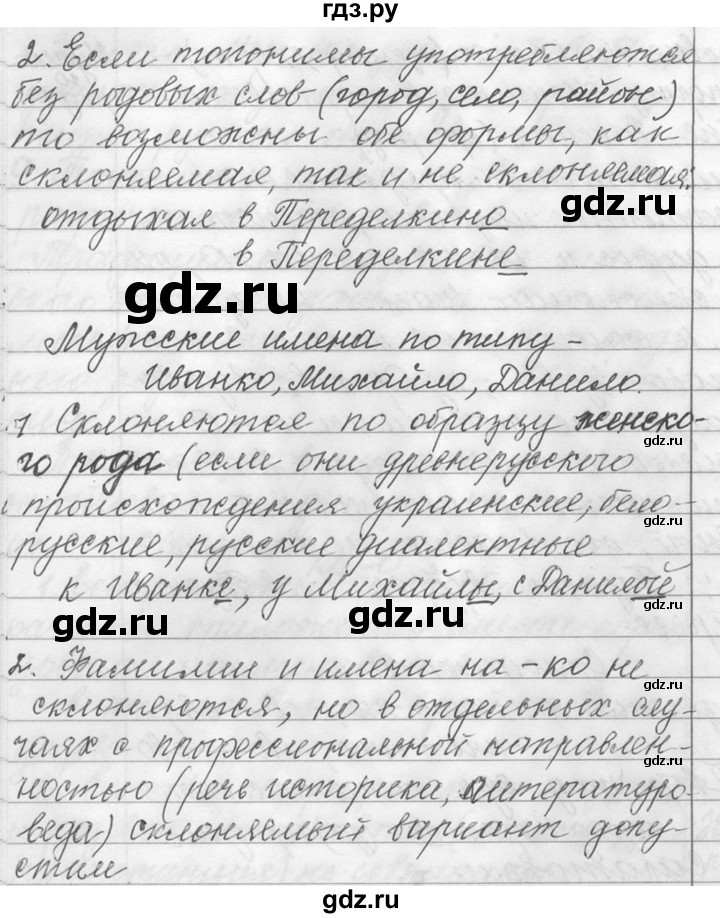 гдз.ру
2. Если топонимы употребляются
без родовых слов (город, село, район)
то возможны обе формы, как
склоняемая, так и не склоняемая:
gdz.ru
отдыхал в Переделкино
в Переделкине
gdz.ru
Мужские имена по типу -
Иванко, Михайло, Данило.
1 Склоняются по образцу женско-
gdz.ru
го рода (если они древнерусского
происхождения украинские, бело-
gdz.ru
русские, русские диалектные
к Иванке, у Михайлы, с Данилой
gdz.ru
gdz.ru
gdz.ru
2. Фамилии и имена на -ко не
gdz.ru
склоняются, но в отдельных слу-
чаях с профессиональной направлен-
gdz.ru
ностью (речь историка, литературо-
веда) склоняемый вариант допу-
gdz.ru
стим
gdz.ru